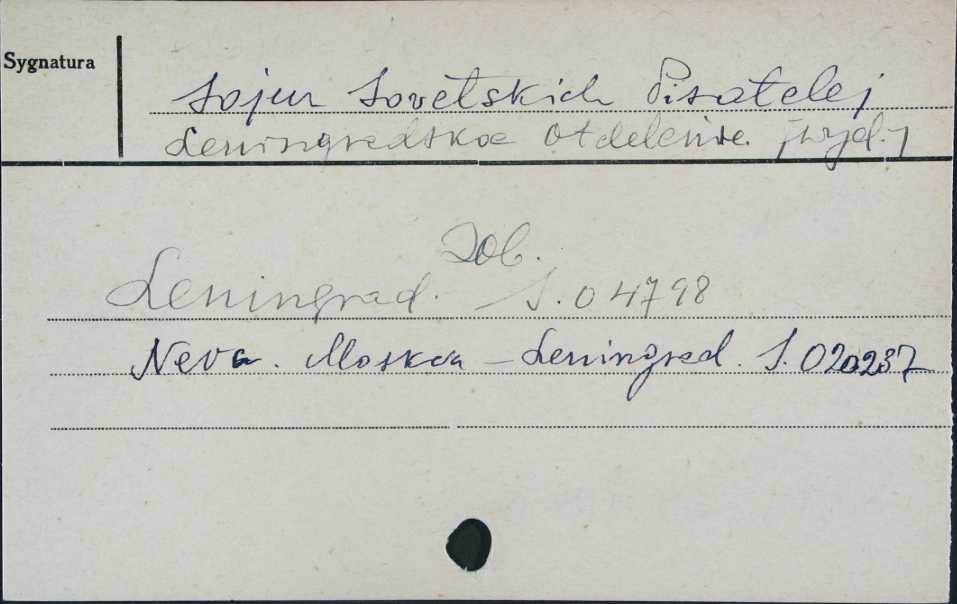 Sygnatura
Sojuz Sovetskich Pisatelej
Leningradskoe Otdelenie. [wyd.]
Zob.
Leningrad. - S. 04798
Neva. Moskva - Leningrad. S. 020237